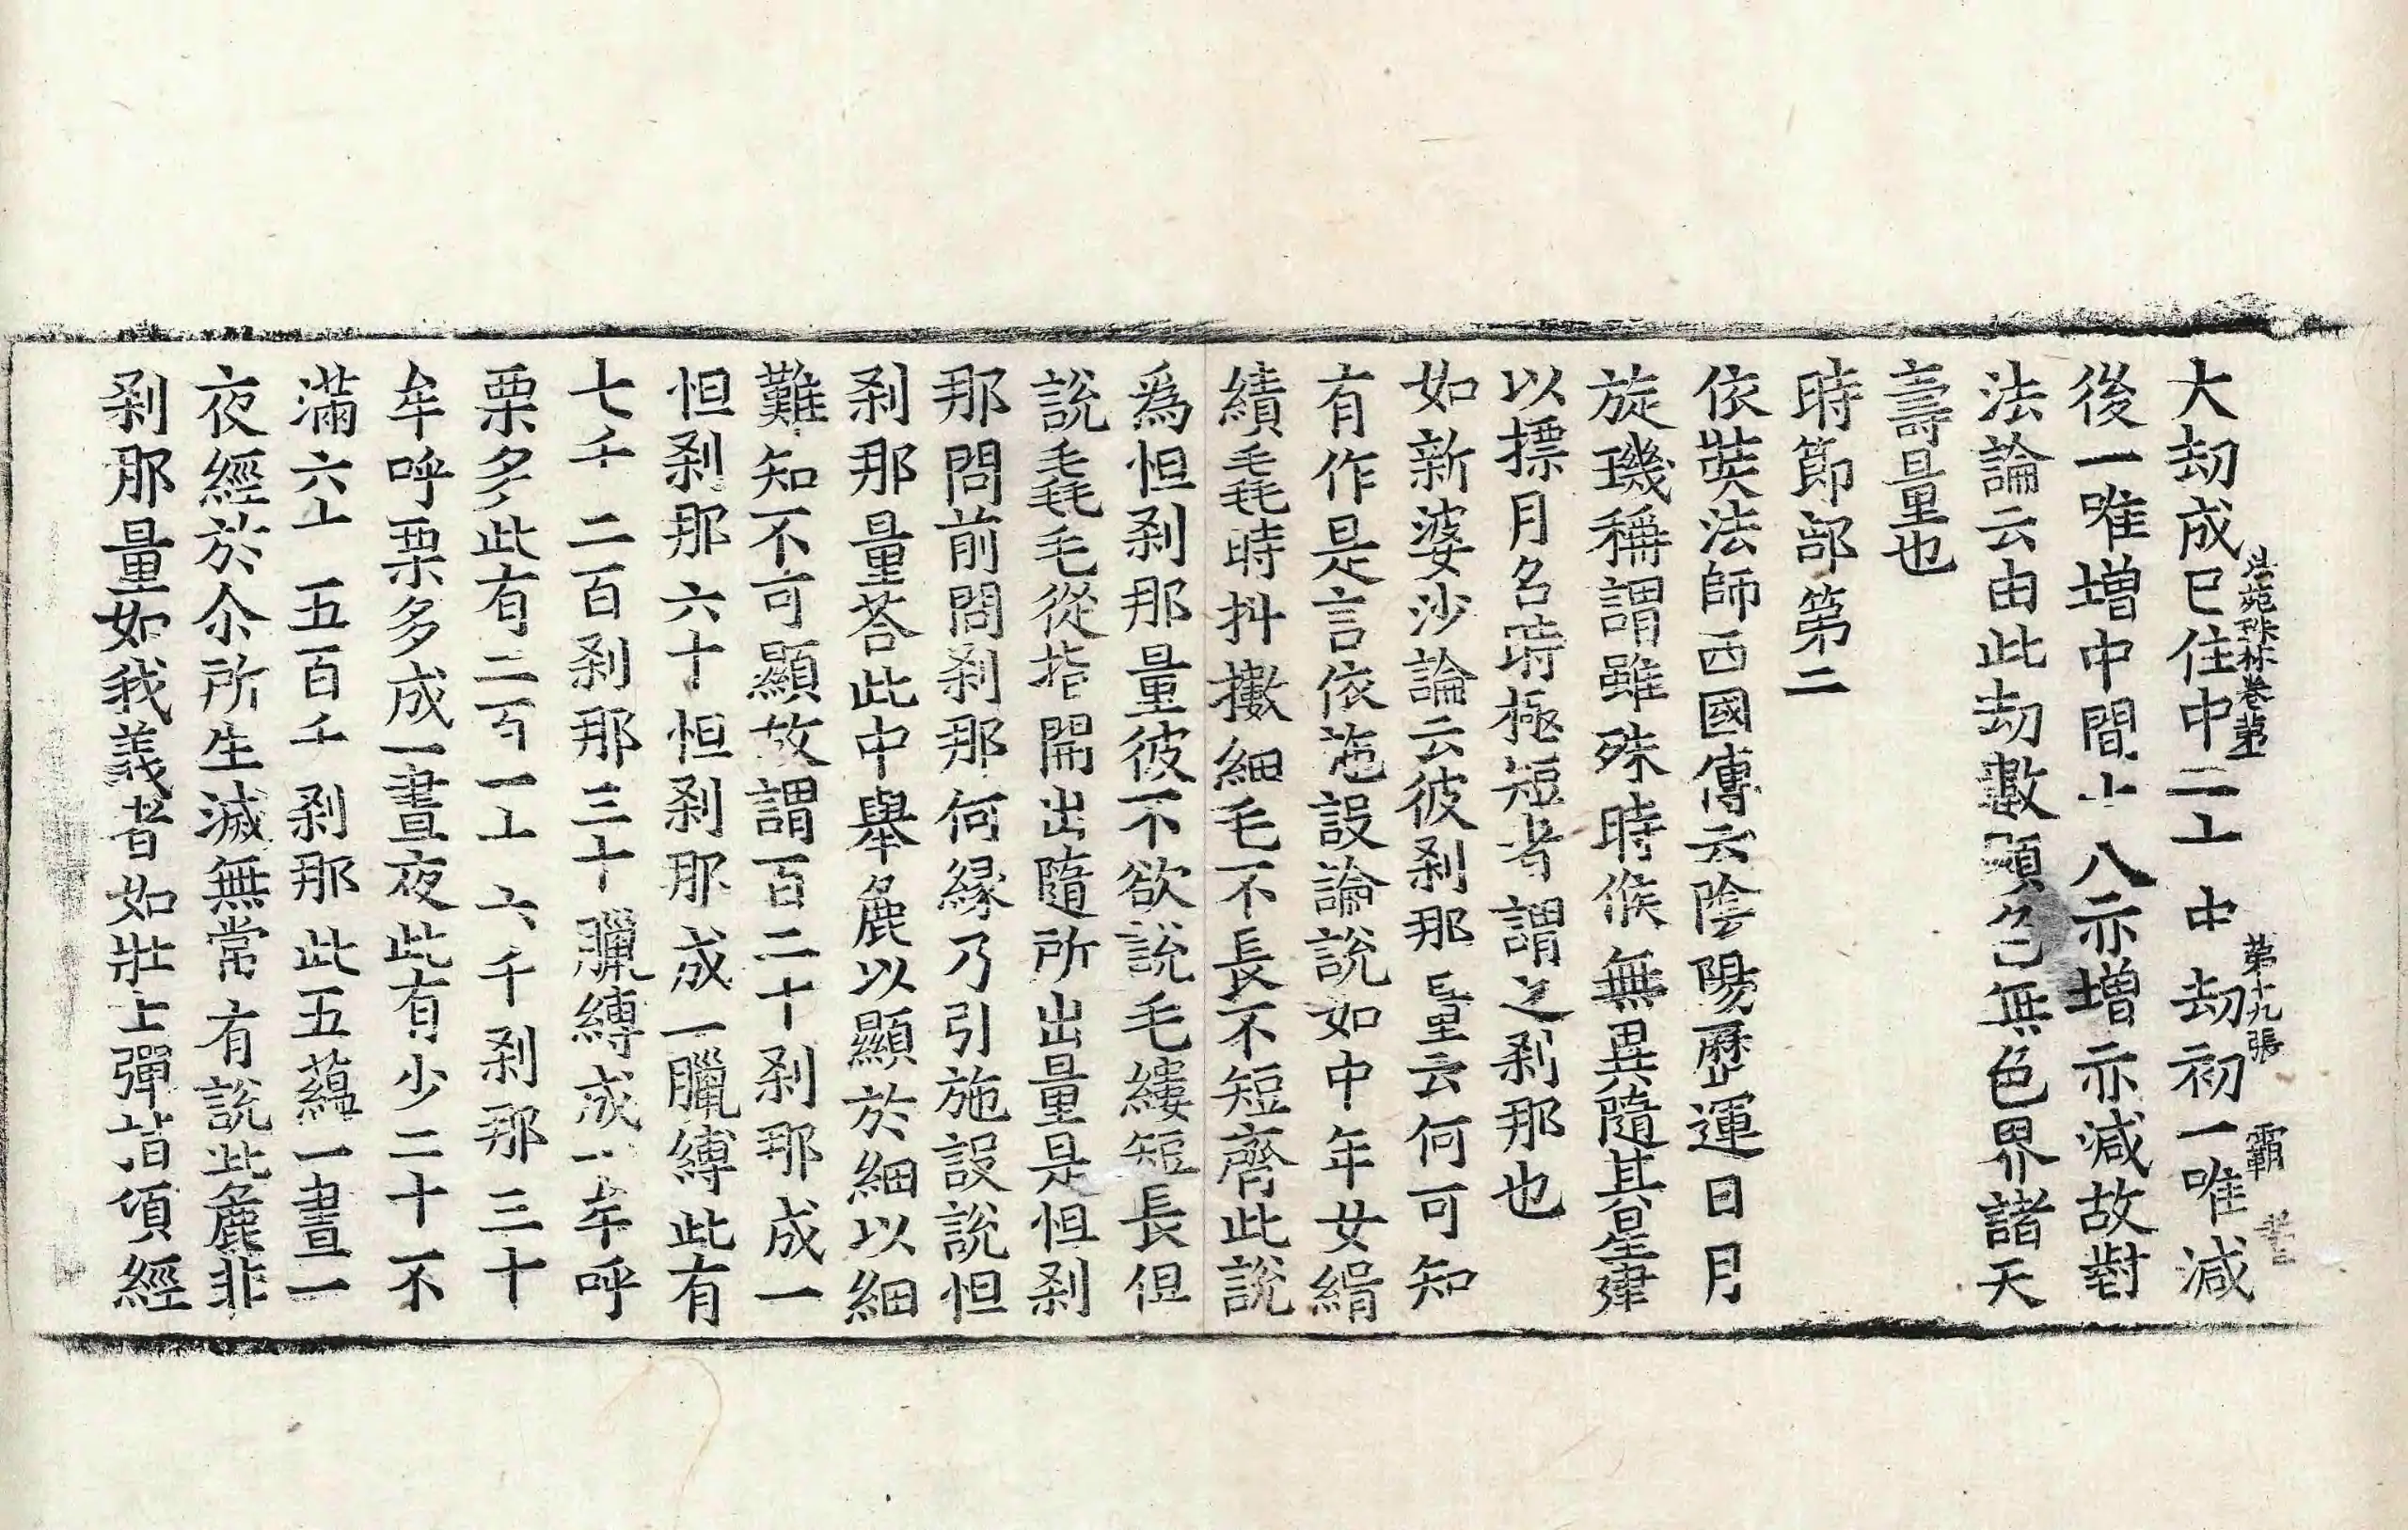 法苑珠林卷第一 第十九張 霸
大劫成已住中二十中劫初一唯減
後一唯増中間十八亦増亦減故對
法論云由此劫數顯色無色界諸天
壽量也
時節部第二
依奘法師西國傳云陰陽歷運日月
旋璣稱謂雖殊時候無異隨其星建
以摽月名時極短者謂之刹那也
如新婆沙論云彼刹那量云何可知
有作是言依施設論說如中年女緝
績毳時抖擻細毛不長不短齊此說
爲怛刹那量彼不欲說毛縷短長但
說毳毛從指閒出隨所出量是怛刹
那問前問刹那何縁乃引施設說怛
刹那量荅此中舉麁以顯於細以細
難知不可顯故謂百二十刹那成一
怛刹那六十怛刹那成一臘縛此有
七千二百刹那三十臘縛成一牟呼
栗多此有二百一十六千刹那三十
牟呼栗多成一晝夜此有少二十不
滿六十五百千刹那此五蘊一晝一
夜經於尒所生滅無常有說此麁非
刹那量如我義者如壯士彈指頃經